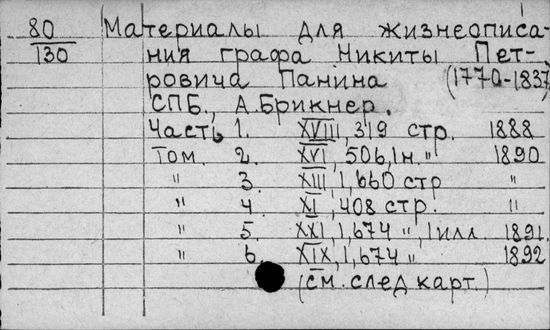 80 Материалы для жизнеописа-
130 ния графа Никиты Пет-
ровича Панина (1770-1837)
СПБ., А.Брикнер.
Часть 1. XVIII, 319 стр. 1888
Том. 2. XVI, 506, 1н. " 1890
" 3. XIII, 1, 660 стр "
" 4 XI, 408 стр. "
" 5. XXI, 1, 674 ", 1 илл. 1891.
" 6. XIX, 1, 674 " 1892
(см. след карт.)